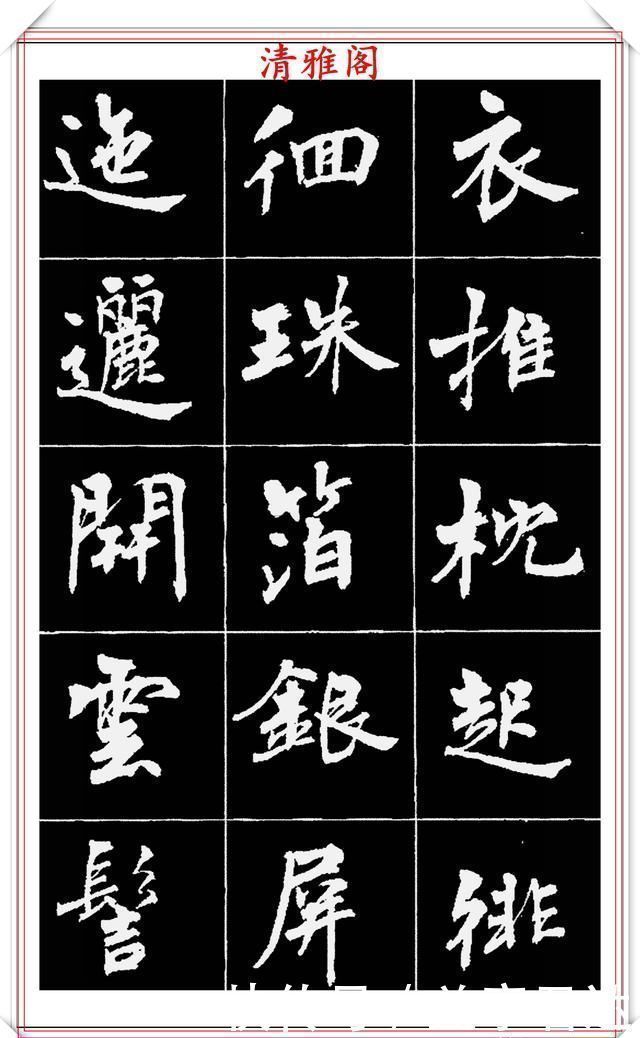 清雅阁
衣推枕起徘
徊珠箔銀屏
迤邐開雲髻